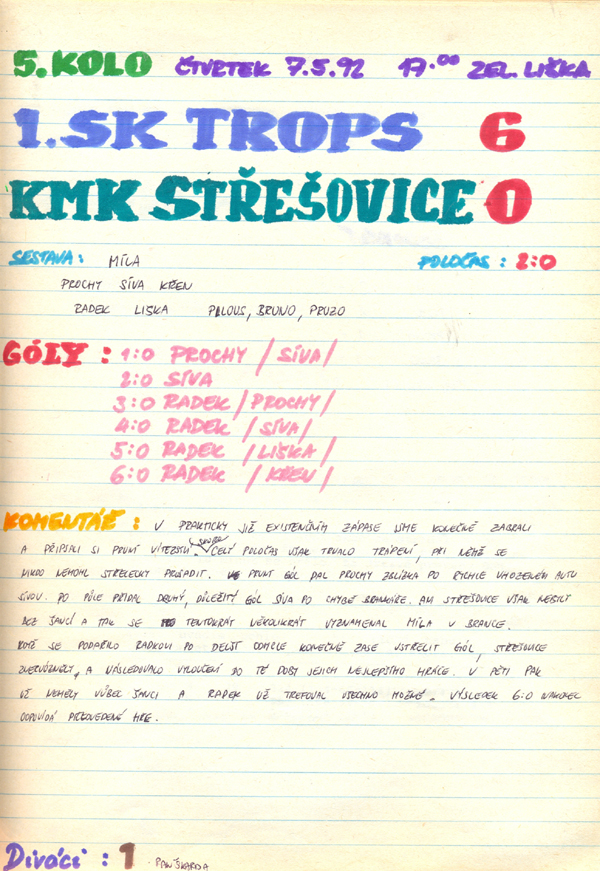 5. KOLO ČTVRTEK 7.5.92 17.00 ZEL. LIŠKA
1.SK TROPS 6
KMK STŘEŠOVICE 1
SESTAVA: MÍLA POLOČAS: 2:0
PROCHY SÍVA KŘEN
RADEK LISKA PALOUS, BRUNO, PRUZO
GÓLY: 1:0 PROCHY /SÍVA/
2:0 SÍVA
3:0 RADEK /PROCHY/
4:0 RADEK /SÍVA/
5:0 RADEK /LIŠKA/
6:0 RADEK /KŘEN/
KOMENTÁŘ: V PRAKTICKY JIŽ EXISTENČNÍM ZÁPASE JSME KONEČNĚ ZABRALI
A PŘIPSALI SI PRVNÍ VÍTĚZSTVÍ. SKORO CELÝ POLOČAS VŠAK TRVALO TRÁPENÍ, PŘI NĚMŽ SE
NIKDO NEMOHL STŘELECKY PROSADIT. PRVNÍ GÓL DAL PROCHY ZBLÍZKA PO RYCHLE VHOZENÉM AUTU
SÍVOU. PO PŮLE PŘIDAL DRUHÝ, DŮLEŽITÝ GÓL SÍVA PO CHYBĚ BRANKÁŘE. ANI STŘEŠOVICE VŠAK NEBYLY
BEZ ŠANCÍ A TAK SE TENTOKRÁT NĚKOLIKRÁT VYZNAMENAL MÍLA V BRANCE.
KDYŽ SE PODAŘILO RADKOVI PO DELŠÍ ODMLCE KONEČNĚ ZASE VSTŘELIT GÓL, STŘEŠOVICE
ZNERVÓZNĚLY, A NÁSLEDOVALO VYLOUČENÍ DO TÉ DOBY JEJICH NEJLEPŠÍHO HRÁČE. V PĚTI PAK
UŽ NEMĚLY VŮBEC ŠANCI A RADEK UŽ TREFOVAL VŠECHNO MOŽNÉ. VÝSLEDEK 6:0 NAKONEC
ODPOVÍDÁ PŘEDVEDENÉ HŘE.
Diváci: 1 PAN ŠKARDA